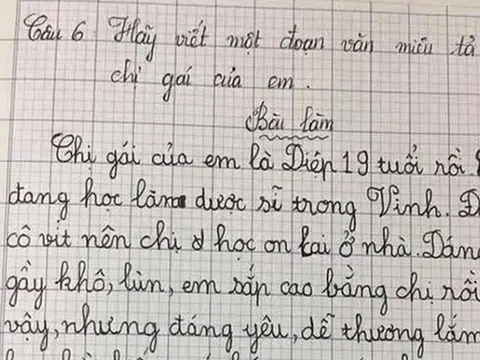 Câu 6 Hãy viết một đoạn văn miêu tả
chị gái của em.
Bài làm
Chị gái của em là Diệp 19 tuổi rồi.
đang học làm dược sĩ trong Vinh. D
cô vit nên chị ở học on lai ở nhà. Dáng
gầy khô, lùn, em sắp cao bằng chị rồi
vậy, nhưng đáng yêu, dễ thương lắm